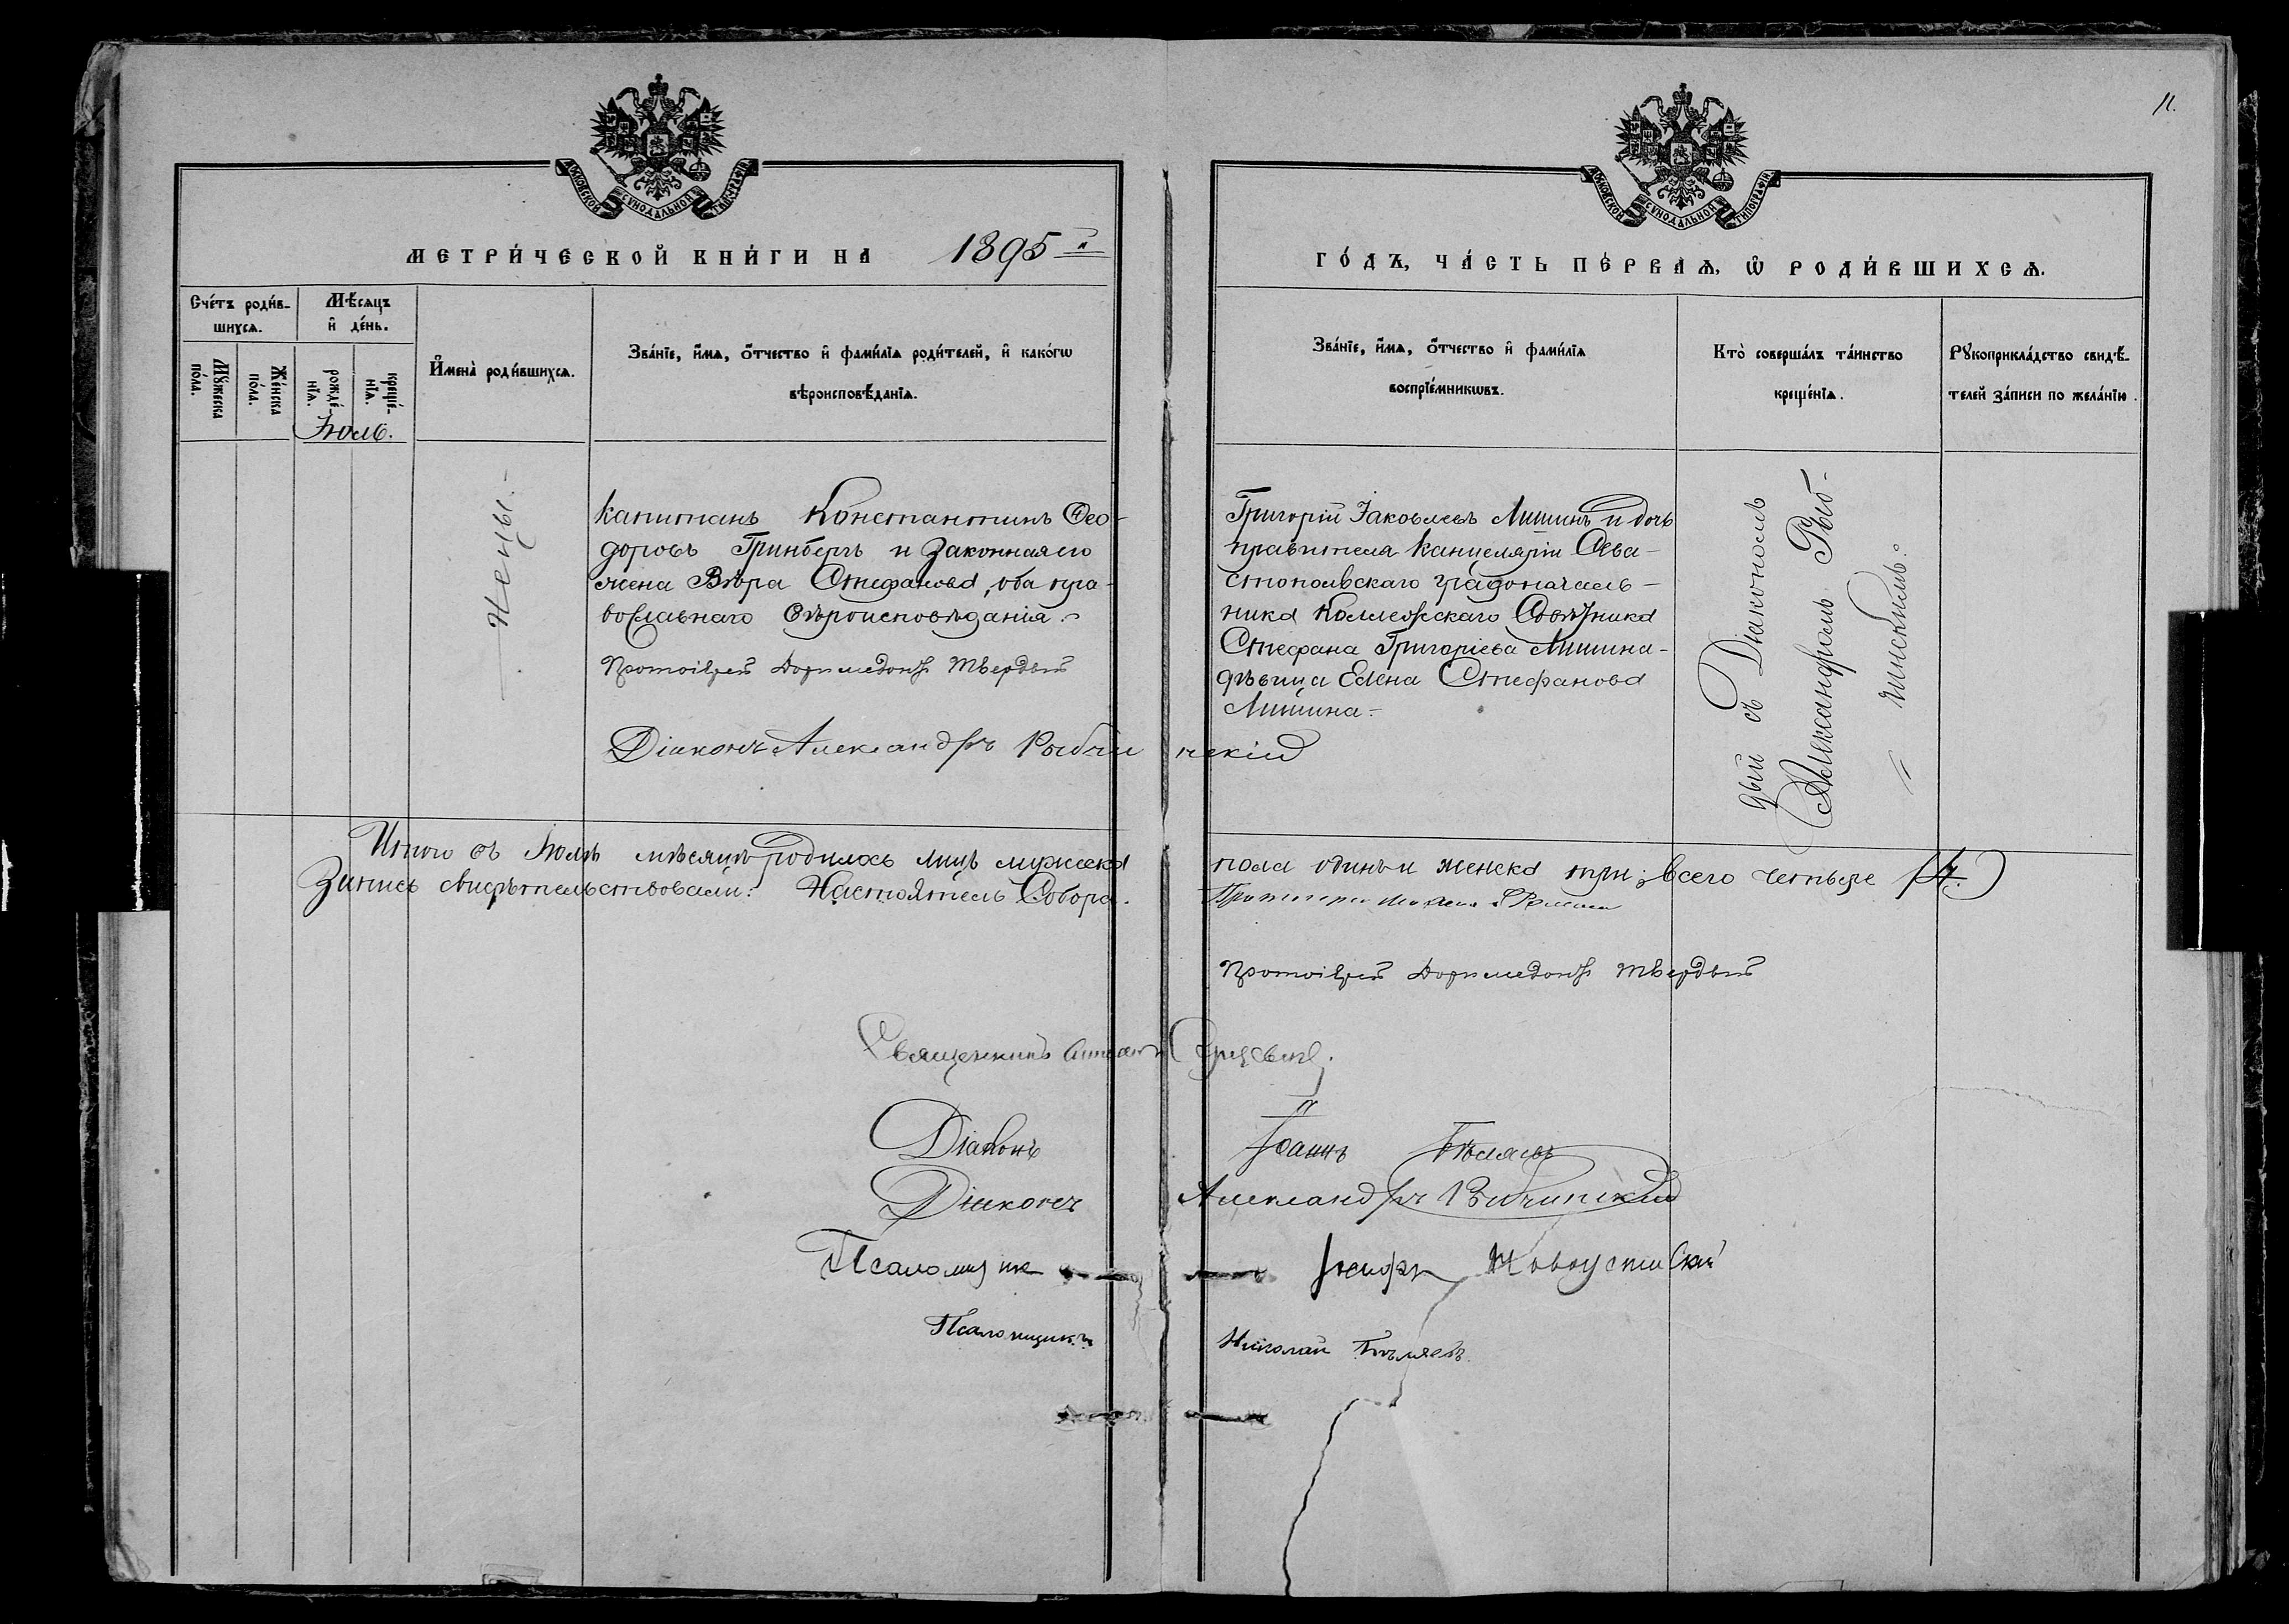 11.
МОСКОВСКОЙ СѴНОДАЛЬНОЙ ТИПОГРАФІИ
МОСКОВСКОЙ СѴНОДАЛЬНОЙ ТИПОГРАФІИ
МЕТРИ́ЧЕСКОЙ КНИ́ГИ НА 1895 й
ГО́ДЪ, ЧА́СТЬ ПЕ́РВАѦ, Ѡ҆ РОДИ́ВШИХСѦ.
Сче́тъ роди́в-
шихсѧ.
Мꙋ́жеска
по́ла.
Же́нска
по́ла.
Мѣ́сѧцъ
и҆ де́нь.
рожде́-
нїѧ.
креще́-
нїѧ.
Іюль.
И҆мена̀ роди́вшихсѧ.
Зва́нїе, и҆́мѧ, ѻ҆́тчество и҆ фами́лїѧ роди́телей, и҆ како́гѡ
вѣроисповѣ́данїѧ.
Зва́нїе, и҆́мѧ, ѻ҆́тчество и҆ фами́лїѧ
воспрїе́мникѡвъ.
Кто̀ соверша́лъ та́инство
креще́нїѧ.
Рꙋкоприкла́дство свидѣ́-
телей за́писи по жела́нїю.
капитанъ Константинъ Ѳео-
доровъ Гринбергъ и законная его
жена Вѣра Стефанова, оба пра-
вославнаго вѣроисповѣданія.
Протоіерей Доримедонтъ Твердый
Діаконъ Александръ Рыбчинскій
Григорій Іаковлевъ Лишинъ и дочь
правителя канцеляріи Сева-
стопольскаго градоначаль-
ника Коллежскаго Совѣтника
Стефана Григоріева Лишина-
дѣвица Елена Стефанова
Лишина.-
дый съ Діакономъ
Александромъ Рыб-
чинскимъ.
Итого въ Іюлѣ мѣсяцѣ родилось лицъ мужеска пола одинъ и женска три, всего четыре (4.)
Запись свидѣтельствовали: Настоятель Собора. Протоіерей
Протоіерей Доримедонтъ Твердый
Священникъ
Діаконъ Іоаннъ Бѣляевъ
Діаконъ Александръ Рыбчинскій
Псаломщикъ Іосифъ
Псаломщикъ Николай Бѣляевъ.